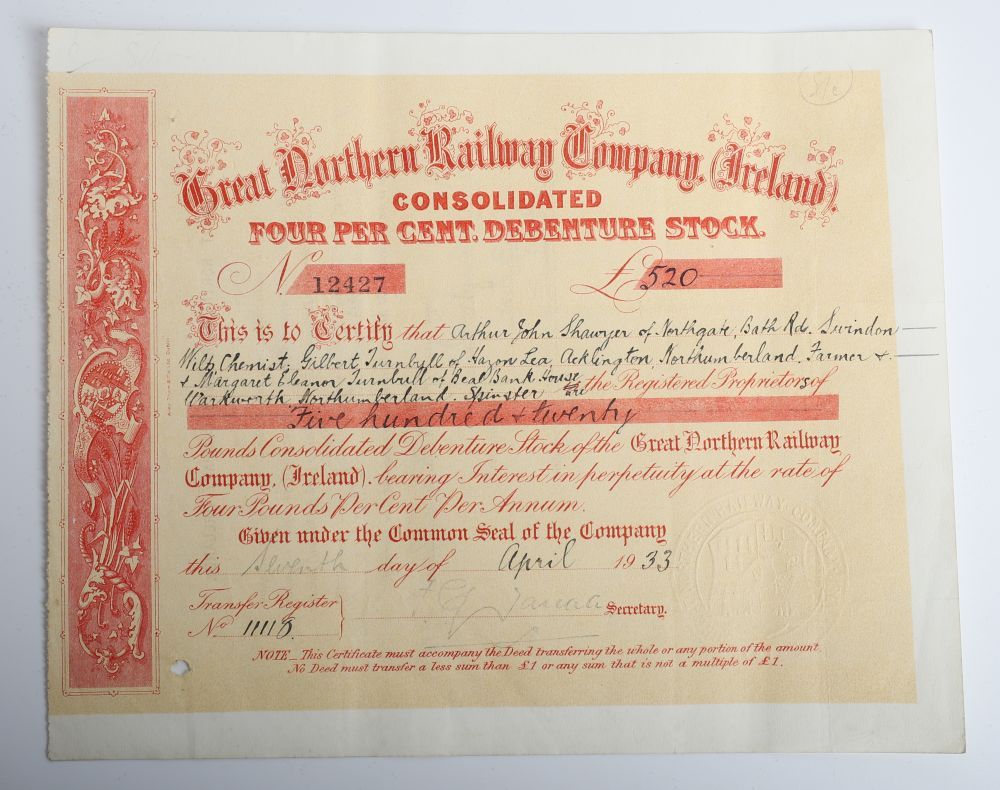 Great Northern Railway Company, (Ireland).
CONSOLIDATED
FOUR PER CENT. DEBENTURE STOCK.
No 12427 £520
This is to Certify that Arthur John Shawyer of Northgate, Bath Rd. Swindon
Wilts Chemist, Gilbert Turnbull of Hazon Lea, Acklington, Northumberland, Farmer &
& Margaret Eleanor Turnbull of Beal Bank House
Warkworth Northumberland. Spinster are the Registered Proprietors of
Five hundred & twenty
Pounds Consolidated Debenture Stock of the Great Northern Railway
Company, (Ireland). bearing Interest in perpetuity at the rate of
Four Pounds Per Cent Per Annum.
Given under the Common Seal of the Company
this Seventh day of April 1933
Transfer Register
No 11118
Secretary.
NOTE_ This Certificate must accompany the Deed transferring the whole or any portion of the amount.
No Deed must transfer a less sum than £1 or any sum that is not a multiple of £1.